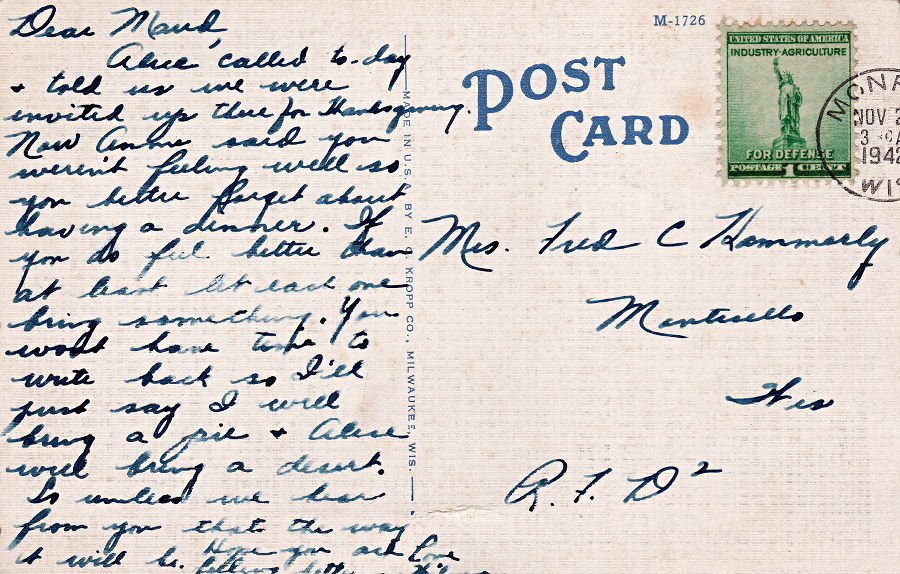 Dear Maud,
Alice called to-day
+ told us we were
invited up there for Thanksgiving.
Now Anne said you
weren't feeling well so
you better forget about
having a dinner. If
you do feel better than
at least let each one
bring something. You
wont have time to
write back so I'll
just say I will
bring a pie + Alice
will bring a desert.
So unless we hear
from you that the way
it will be. Hope you are
feeling better
Love
MADE IN U.S.A. BY E. C. KROPP CO., MILWAUKEE, WIS.
M-1726
POST
CARD
UNITED STATES OF AMERICA
INDUSTRY·AGRICULTURE
FOR DEFENSE
POSTAGE 1 CENT
MONR
NOV 2
3
1942
WIS
Mrs. Fred C Hammerly
Monticello
Wis
R. F. D 2